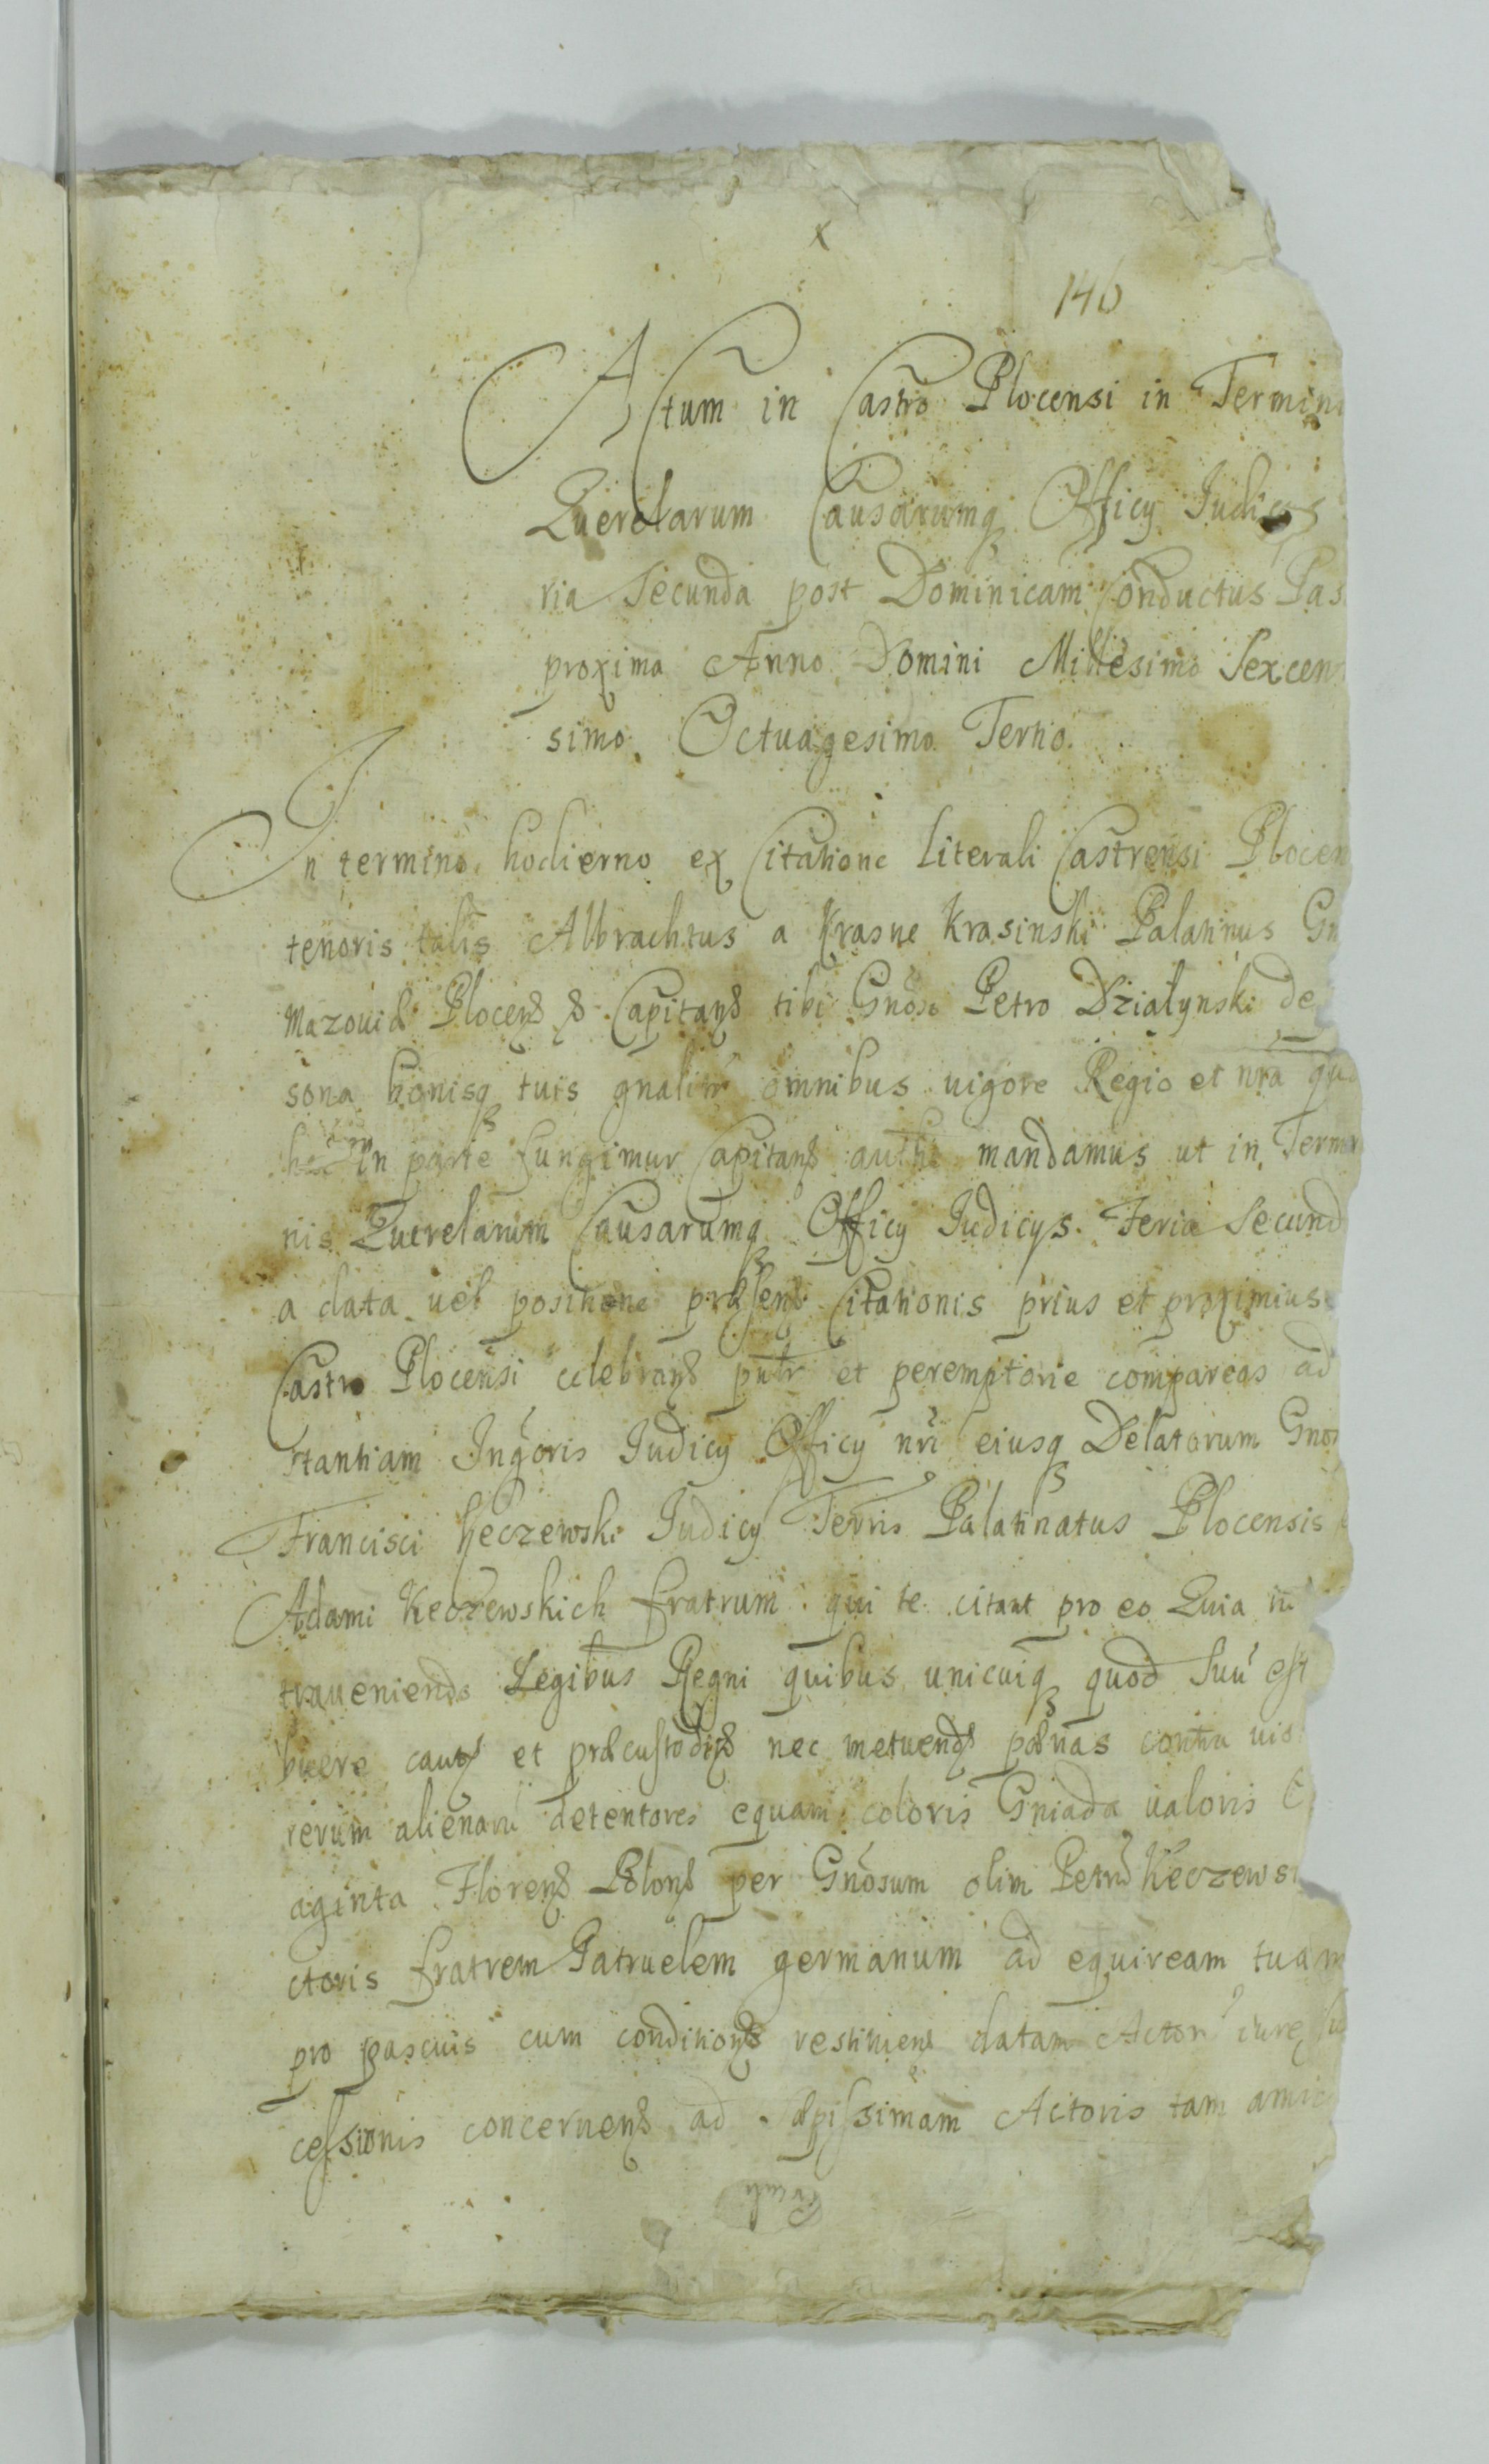 x
146
Actum in Castro Plocensi in Termini
Querelarum Causarumq Officy Iudicys
ria Secunda post Dominicam Conductus Pas
proxima Anno Domini Millesimo Sexcen
simo Octuagesimo Tertio.
In termino hodierno ex Citatione Literali Castrensi Plocen
tenoris talis Albrachtus a Krasne Krasinski Palatinus Gn
Mazouiæ Plocens Capitans tibi Gnoso Petro Dzialynski de
sona bonisq tuis gnalitr omnibus uigore Regio et nra qua
hac in parte fungimur Capitans authe mandamus ut in Termi
nis Querelarum Causarumq Officy Iudicys Feria Secund
a data uel positione præsens Citationis prius et proximius
Castro Plocensi celebrans pntr et peremptorie compareas ad
stantiam Ingoris Iudicy Officy nri eiusq Delatorum Gnos
Francisci Keczewski Iudicy Terris Palatinatus Plocensis
Adami Keczewskich fratrum qui te citant pro eo Quia tu
traueniendo Legibus Regni quibus unicuiq quod Suu est
buere et præcustodis nec metuends pænas contra uio
rerum alienaru detentores equam coloris Gniada ualoris
aginta Florens Polons per Gnosum olim Petru Keczewsk
ctoris fratrem Patruelem germanum ad equiream tuam
pro pascuis cum conditions restituens datam Actori iure
cessionis concernens ad sæpissimam Actoris tam amic